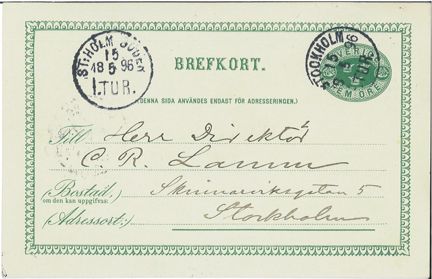 ST:HOLM SÖDER
15
18 5 96
1.TUR.
STOCKHOLM
15
5 96
TUR.
SVERIGE
FEM ÖRE
BREFKORT.
(DENNA SIDA ANVÄNDES ENDAST FÖR ADRESSERINGEN.)
Till Herr Direktör
C. R. Lamm
(Bostad,) 5
(om den kan uppgifvas:)
(Adressort:) Stockholm